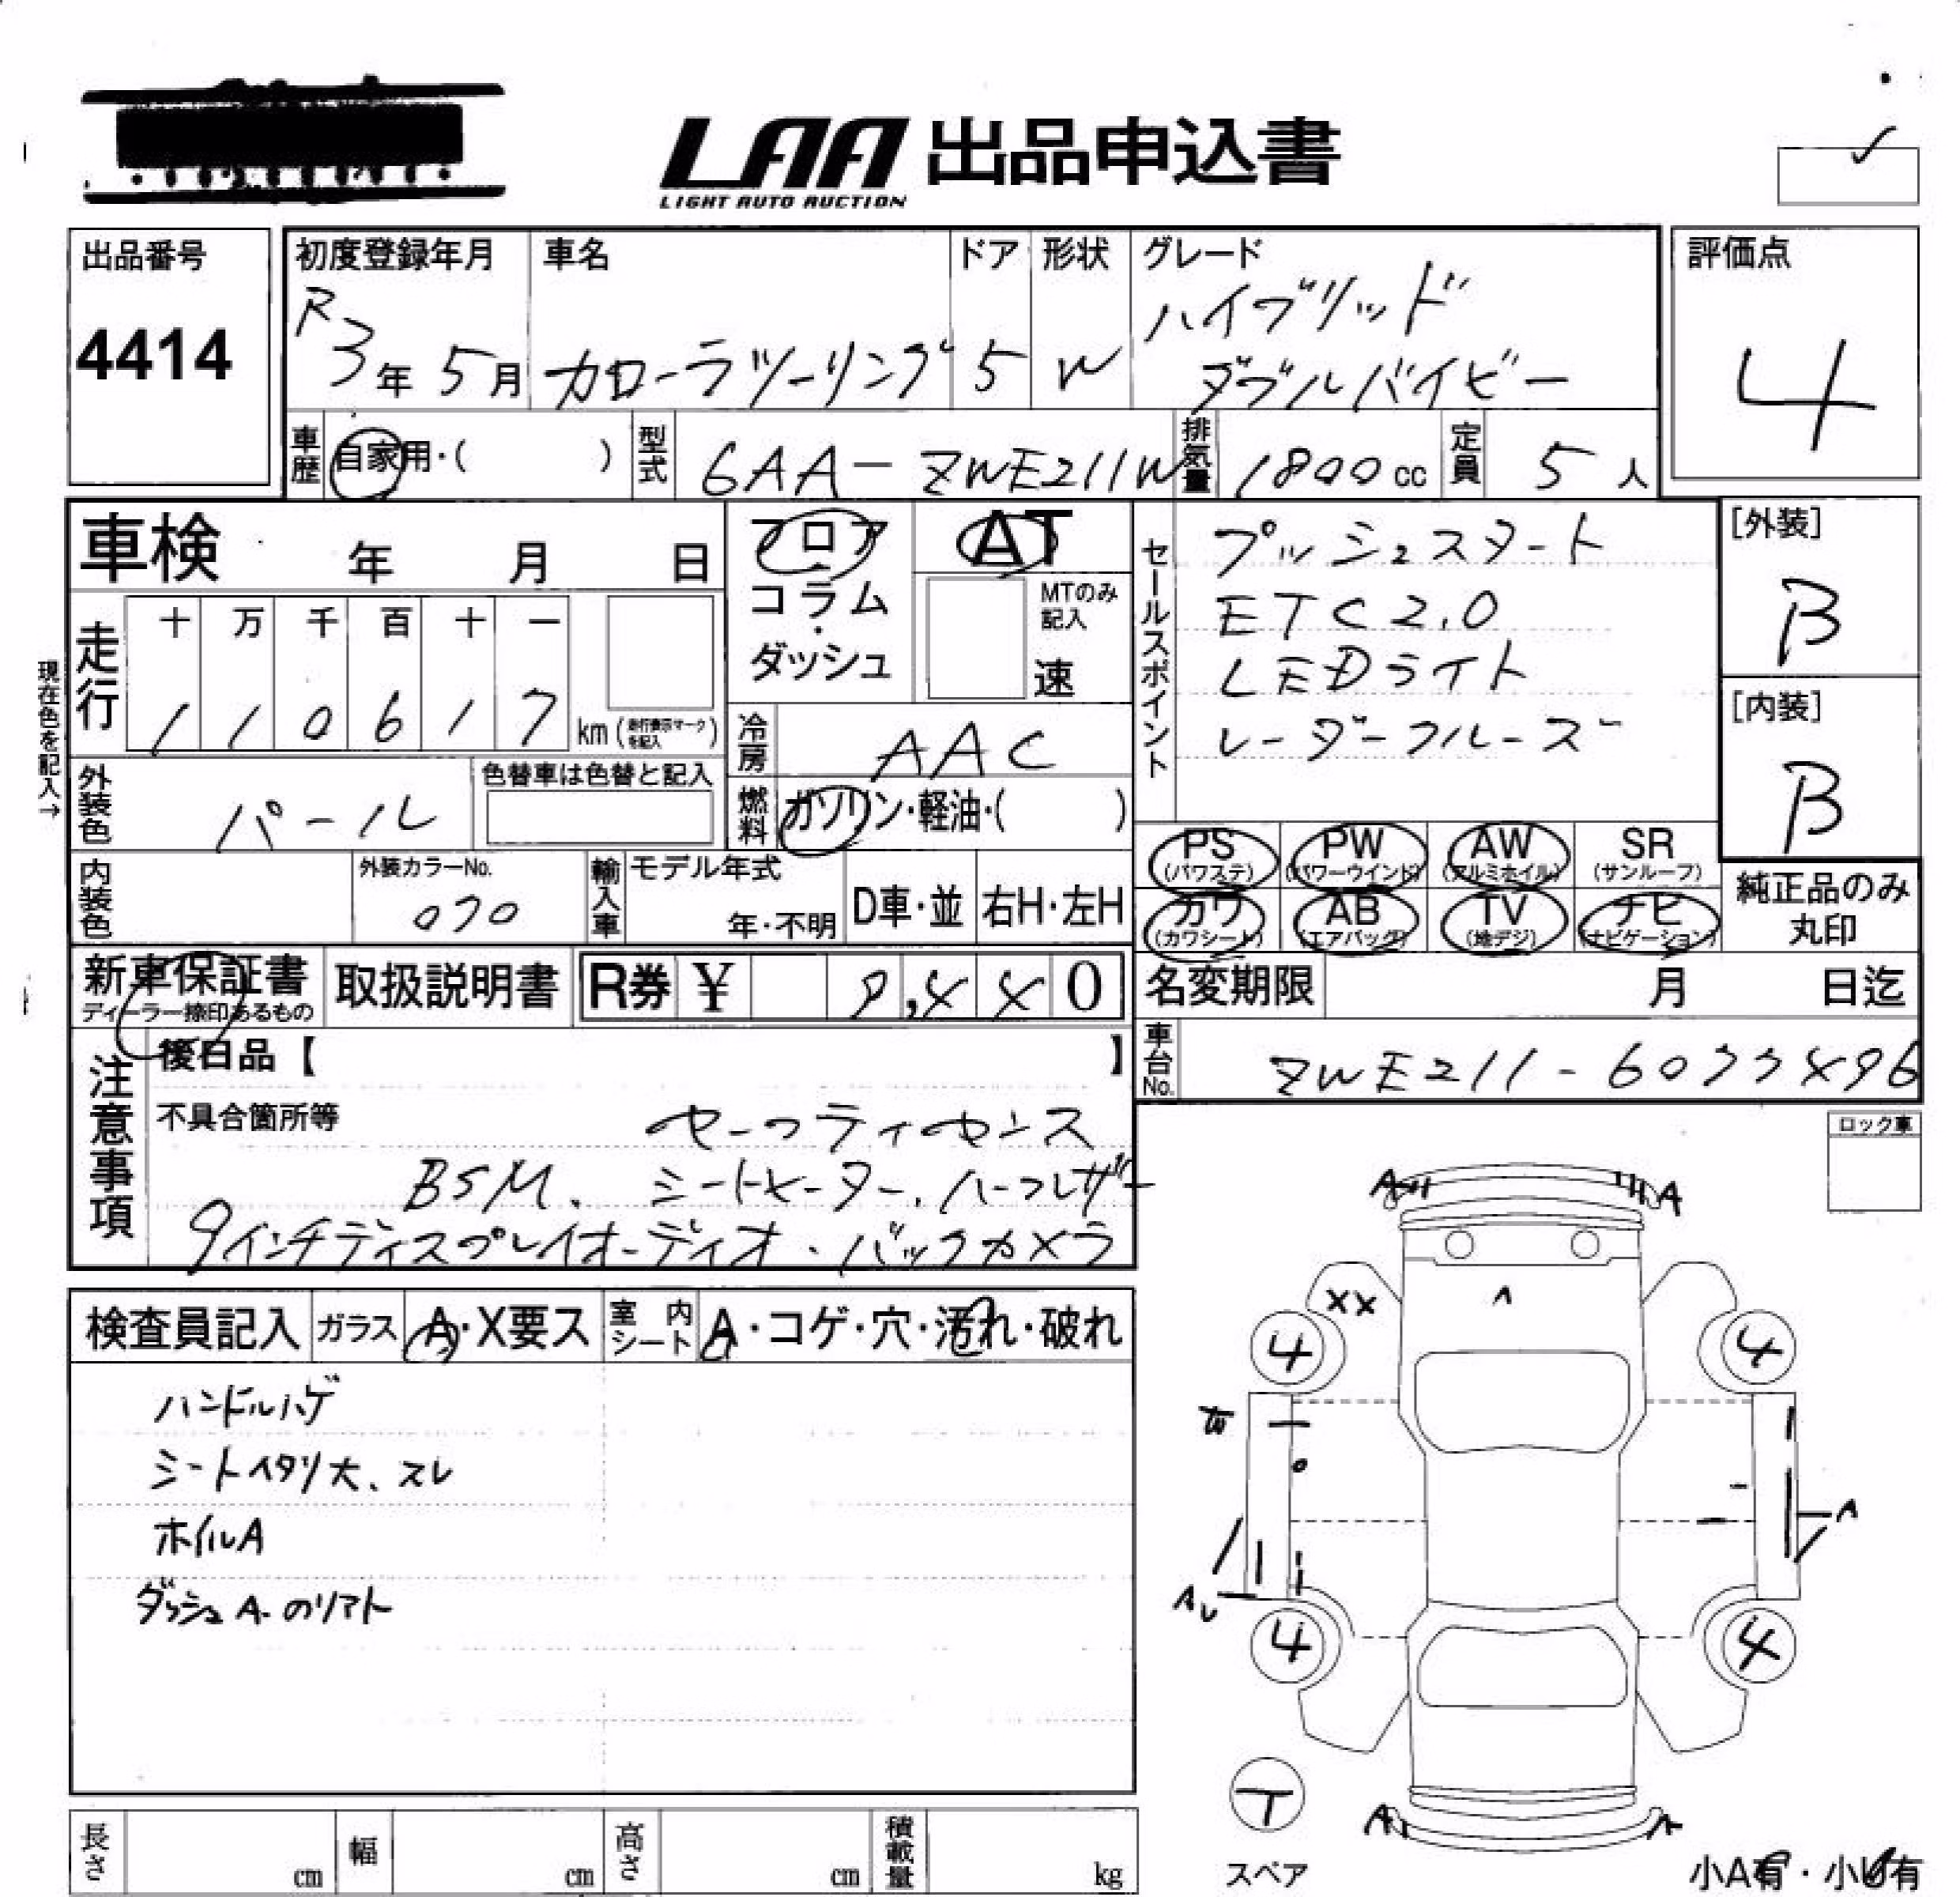 LAA 出品申込書
LIGHT AUTO AUCTION
出品番号
4414
初度登録年月
R3年5月
車名
カローラツーリング
ドア
5
形状
W
グレード
ハイブリッド
ダブルバイビー
評価点
4
車歴 自家用・( )
型式 6AA-ZWE211W
排気量 1800cc
定員 5人
車検 年 月 日
フロア
コラム
・
ダッシュ
AT
MTのみ
記入
速
走行
十 万 千 百 十 一
1 1 0 6 1 7 km (走行表示マークを記入)
現在色を記入→
冷房 AAC
燃料 ガソリン・軽油・( )
外装色 パール
色替車は色替と記入
内装色
外装カラーNo.
070
輸入車
モデル年式
年・不明
D車・並
右H・左H
セールスポイント
プッシュスタート
ETC2.0
LEDライト
レーダークルーズ
[外装]
B
[内装]
B
PS (パワステ)
PW (パワーウインド)
AW (アルミホイル)
SR (サンルーフ)
カワ (カワシート)
AB (エアバッグ)
TV (地デジ)
ナビ (ナビゲーション)
純正品のみ
丸印
新車保証書
ディーラー捺印あるもの
取扱説明書
R券 ¥ 9,440
名変期限 月 日迄
車台No.
注意事項
後日品【 】
不具合箇所等
セーフティセンス
BSM、シートヒーター、ハーフレザー
9インチディスプレイオーディオ・バックカメラ
ロック車
検査員記入
ガラス A・X要ス
室内シート A・コゲ・穴・汚れ・破れ
ハンドルハゲ
シートヘタリ大、スレ
ホイルA
ダッシュA-のリアト
A A
XX
A
4 4
A
AU
4 4
T
スペア
A A
小A有・小U有
長さ cm
幅 cm
高さ cm
積載量 kg